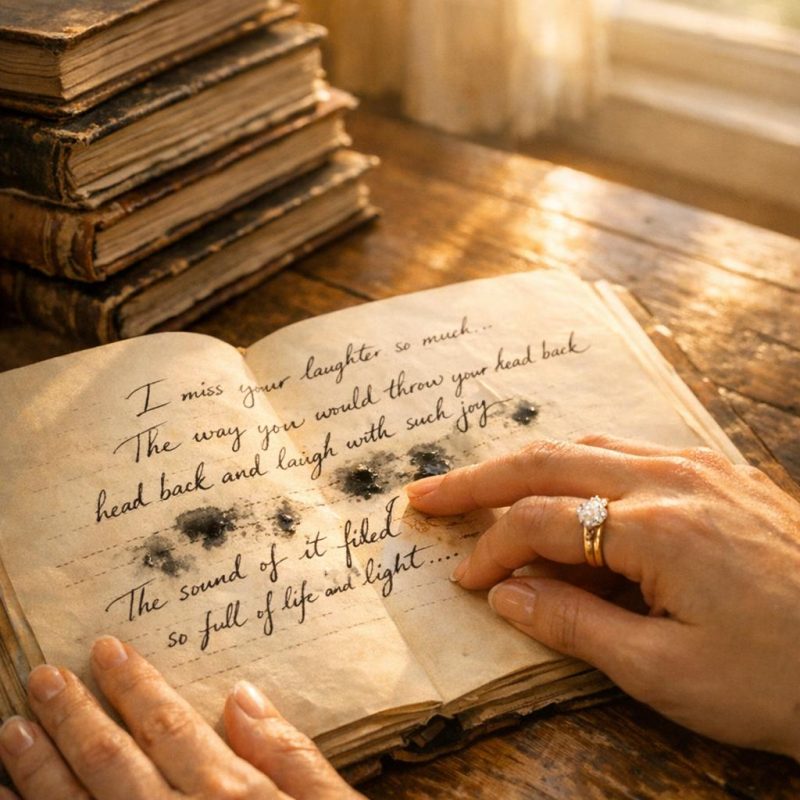 I miss your laughter so much...
The way you would throw your head back
head back and laugh with such joy
The sound of it filled
so full of life and light....